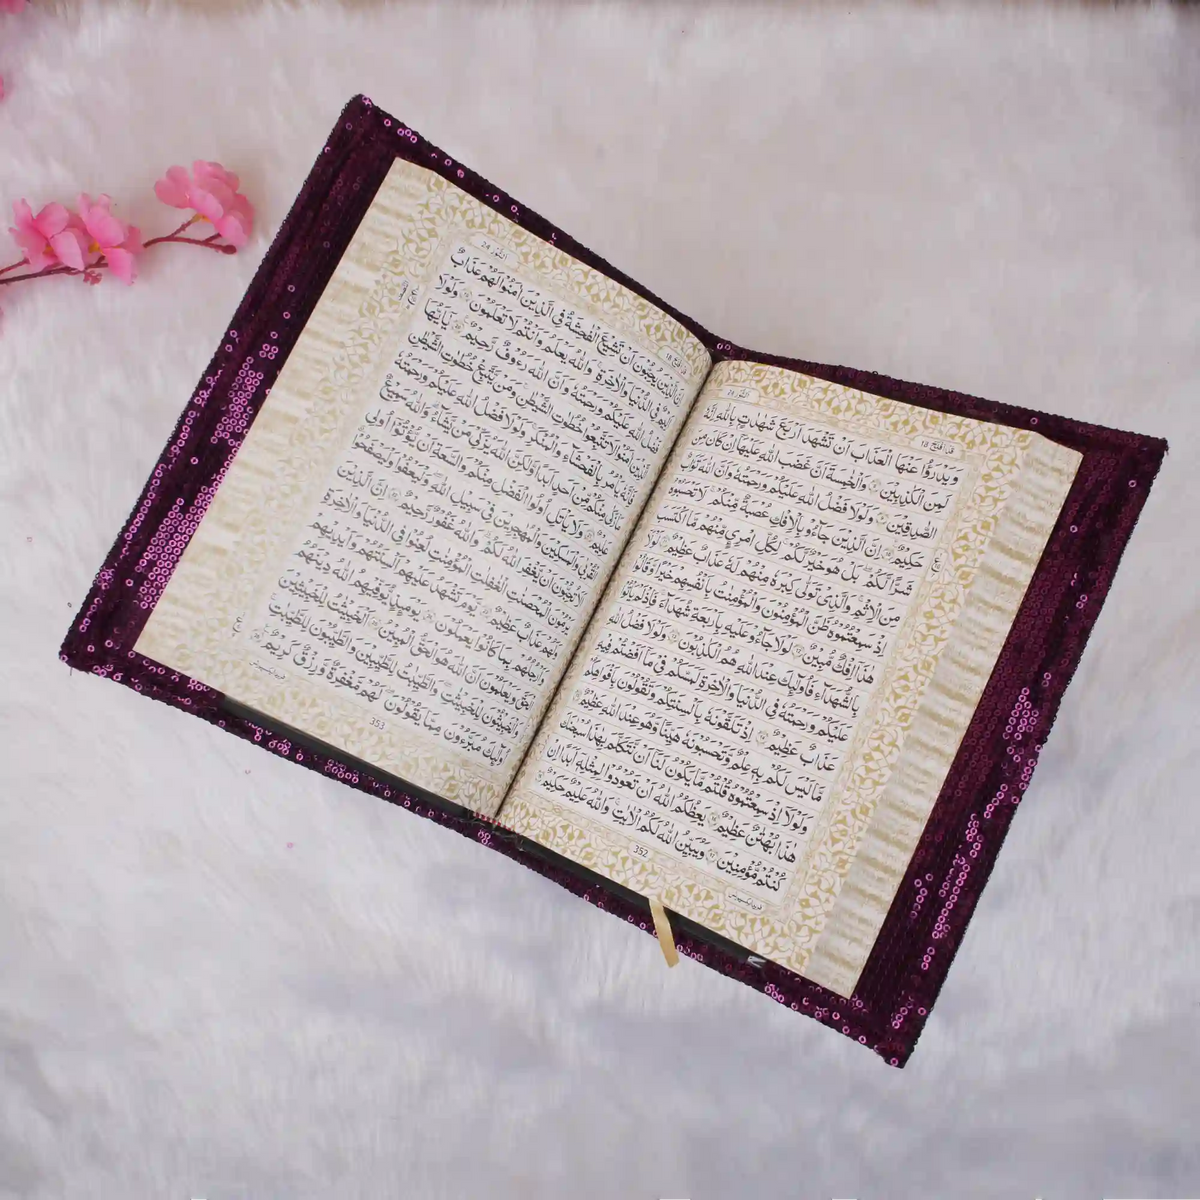 قد افلح ١٨
النُّوْر ٢٤
وَيَدْرَؤُا عَنْهَا الْعَذَابَ اَنْ تَشْهَدَ اَرْبَعَ شَهٰدٰتٍۭ بِاللّٰهِ اِنَّهٗ
لَمِنَ الْكٰذِبِيْنَ وَالْخَامِسَةَ اَنَّ غَضَبَ اللّٰهِ عَلَيْهَاۤ اِنْ كَانَ مِنَ
الصّٰدِقِيْنَ وَلَوْلَا فَضْلُ اللّٰهِ عَلَيْكُمْ وَرَحْمَتُهٗ وَاَنَّ اللّٰهَ تَوَّابٌ
حَكِيْمٌ اِنَّ الَّذِيْنَ جَآءُوْ بِالْاِفْكِ عُصْبَةٌ مِّنْكُمْ لَا تَحْسَبُوْهُ
شَرًّا لَّكُمْ بَلْ هُوَ خَيْرٌ لَّكُمْ لِكُلِّ امْرِئٍ مِّنْهُمْ مَّا اكْتَسَبَ
مِنَ الْاِثْمِ وَالَّذِيْ تَوَلّٰى كِبْرَهٗ مِنْهُمْ لَهٗ عَذَابٌ عَظِيْمٌ لَوْلَاۤ
اِذْ سَمِعْتُمُوْهُ ظَنَّ الْمُؤْمِنُوْنَ وَالْمُؤْمِنٰتُ بِاَنْفُسِهِمْ خَيْرًا وَّقَالُوْا
هٰذَاۤ اِفْكٌ مُّبِيْنٌ لَوْلَا جَآءُوْ عَلَيْهِ بِاَرْبَعَةِ شُهَدَآءَ فَاِذْ لَمْ يَاْتُوْا
بِالشُّهَدَآءِ فَاُولٰٓئِكَ عِنْدَ اللّٰهِ هُمُ الْكٰذِبُوْنَ وَلَوْلَا فَضْلُ اللّٰهِ
عَلَيْكُمْ وَرَحْمَتُهٗ فِي الدُّنْيَا وَالْاٰخِرَةِ لَمَسَّكُمْ فِيْ مَاۤ اَفَضْتُمْ فِيْهِ
عَذَابٌ عَظِيْمٌ اِذْ تَلَقَّوْنَهٗ بِاَلْسِنَتِكُمْ وَتَقُوْلُوْنَ بِاَفْوَاهِكُمْ
مَّا لَيْسَ لَكُمْ بِهٖ عِلْمٌ وَّتَحْسَبُوْنَهٗ هَيِّنًا وَّهُوَ عِنْدَ اللّٰهِ عَظِيْمٌ
وَلَوْلَاۤ اِذْ سَمِعْتُمُوْهُ قُلْتُمْ مَّا يَكُوْنُ لَنَاۤ اَنْ نَّتَكَلَّمَ بِهٰذَا سُبْحٰنَكَ
هٰذَا بُهْتَانٌ عَظِيْمٌ يَعِظُكُمُ اللّٰهُ اَنْ تَعُوْدُوْا لِمِثْلِهٖۤ اَبَدًا اِنْ
كُنْتُمْ مُّؤْمِنِيْنَ وَيُبَيِّنُ اللّٰهُ لَكُمُ الْاٰيٰتِ وَاللّٰهُ عَلِيْمٌ حَكِيْمٌ
352
النُّوْر 24
اِنَّ الَّذِيْنَ يُحِبُّوْنَ اَنْ تَشِيْعَ الْفَاحِشَةُ فِي الَّذِيْنَ اٰمَنُوْا لَهُمْ عَذَابٌ
اَلِيْمٌ فِي الدُّنْيَا وَالْاٰخِرَةِ وَاللّٰهُ يَعْلَمُ وَاَنْتُمْ لَا تَعْلَمُوْنَ وَلَوْلَا
فَضْلُ اللّٰهِ عَلَيْكُمْ وَرَحْمَتُهٗ وَاَنَّ اللّٰهَ رَءُوْفٌ رَّحِيْمٌ يٰۤاَيُّهَا
الَّذِيْنَ اٰمَنُوْا لَا تَتَّبِعُوْا خُطُوٰتِ الشَّيْطٰنِ وَمَنْ يَّتَّبِعْ خُطُوٰتِ الشَّيْطٰنِ
فَاِنَّهٗ يَاْمُرُ بِالْفَحْشَآءِ وَالْمُنْكَرِ وَلَوْلَا فَضْلُ اللّٰهِ عَلَيْكُمْ وَرَحْمَتُهٗ
مَا زَكٰى مِنْكُمْ مِّنْ اَحَدٍ اَبَدًا وَّلٰكِنَّ اللّٰهَ يُزَكِّيْ مَنْ يَّشَآءُ وَاللّٰهُ سَمِيْعٌ
عَلِيْمٌ وَلَا يَاْتَلِ اُولُوا الْفَضْلِ مِنْكُمْ وَالسَّعَةِ اَنْ يُّؤْتُوْۤا اُولِي
الْقُرْبٰى وَالْمَسٰكِيْنَ وَالْمُهٰجِرِيْنَ فِيْ سَبِيْلِ اللّٰهِ وَلْيَعْفُوْا وَلْيَصْفَحُوْا
اَلَا تُحِبُّوْنَ اَنْ يَّغْفِرَ اللّٰهُ لَكُمْ وَاللّٰهُ غَفُوْرٌ رَّحِيْمٌ اِنَّ الَّذِيْنَ
يَرْمُوْنَ الْمُحْصَنٰتِ الْغٰفِلٰتِ الْمُؤْمِنٰتِ لُعِنُوْا فِي الدُّنْيَا وَالْاٰخِرَةِ
وَلَهُمْ عَذَابٌ عَظِيْمٌ يَّوْمَ تَشْهَدُ عَلَيْهِمْ اَلْسِنَتُهُمْ وَاَيْدِيْهِمْ
وَاَرْجُلُهُمْ بِمَا كَانُوْا يَعْمَلُوْنَ يَوْمَئِذٍ يُّوَفِّيْهِمُ اللّٰهُ دِيْنَهُمُ
الْحَقَّ وَيَعْلَمُوْنَ اَنَّ اللّٰهَ هُوَ الْحَقُّ الْمُبِيْنُ اَلْخَبِيْثٰتُ لِلْخَبِيْثِيْنَ
وَالْخَبِيْثُوْنَ لِلْخَبِيْثٰتِ وَالطَّيِّبٰتُ لِلطَّيِّبِيْنَ وَالطَّيِّبُوْنَ لِلطَّيِّبٰتِ
اُولٰٓئِكَ مُبَرَّءُوْنَ مِمَّا يَقُوْلُوْنَ لَهُمْ مَّغْفِرَةٌ وَّرِزْقٌ كَرِيْمٌ
353